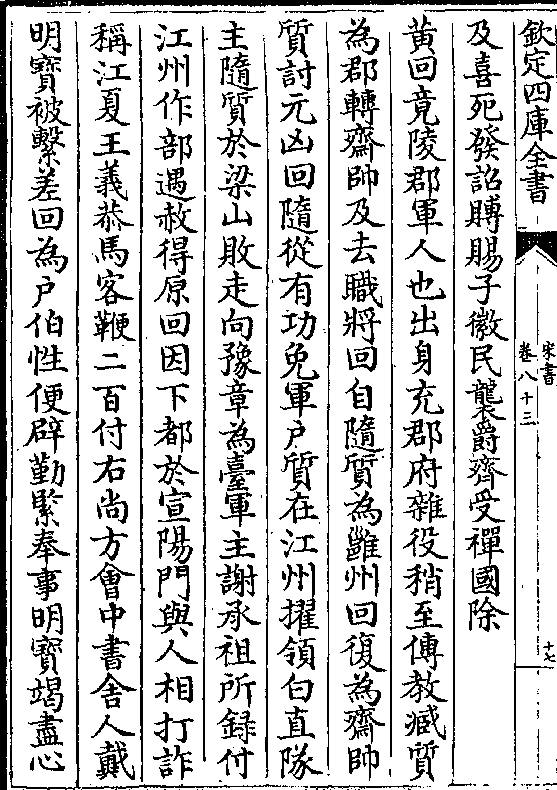 欽定四庫全書
宋書
卷八十三
十七
及喜死發詔賻賜子徽民襲爵齊受禪國除
黃回竟陵郡軍人也出身充郡府雜役稍至傳教臧質
為郡轉齋帥及去職將回自隨質為雝州回復為齋帥
質討元凶回隨從有功免軍戶質在江州擢領白直隊
主隨質於梁山敗走向豫章為臺軍主謝承祖所録付
江州作部遇赦得原回因下都於宣陽門與人相打詐
稱江夏王義恭馬客鞭二百付右尚方會中書舍人戴
明寶被繫差回為戶伯性便辟勤緊奉事明寶竭盡心